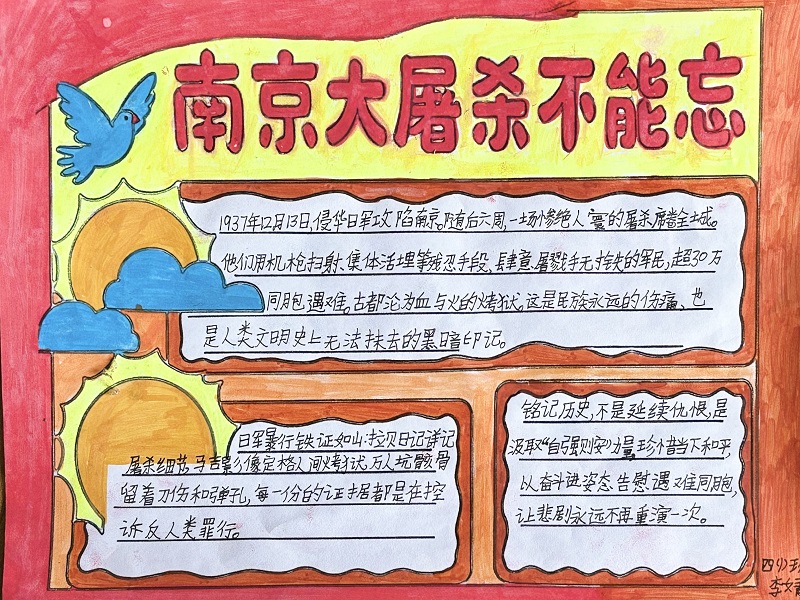 南京大屠杀不能忘
1937年12月13日,侵华日军攻陷南京。随后六周,一场惨绝人寰的屠杀席卷全城。
他们用机枪扫射、集体活埋等残忍手段、肆意屠戮手无寸铁的军民,超30万
同胞遇难。古都沦为血与火的炼狱,这是民族永远的伤痛,也
是人类文明史上无法抹去的黑暗印记。
日军暴行铁证如山:拉贝日记详记
屠杀细节,马吉影像定格人间炼狱,万人坑骸骨
留着刀伤和弹孔,每一份的证据都是在控
诉反人类罪行。
铭记历史,不是延续仇恨,是
汲取“自强则安”力量,珍惜当下和平,
以奋斗进姿态告慰遇难同胞,
让悲剧永远不再重演一次。
四(1)班